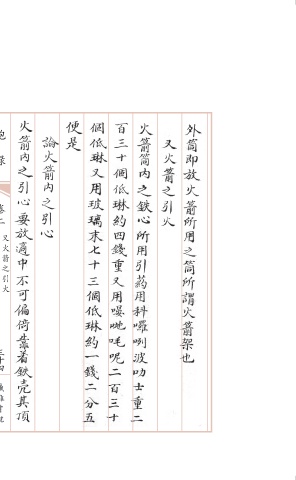 外筒即放火箭所用之筒所謂火箭架也
又火箭之引火
火箭筒内之鉄心所用引葯用科囉唎波叻士重二
百三十個低琳約四錢重又用嗼哋毛呢二百三十
個低琳又用玻璃末七十三個低琳約一錢二分五
便是
論火箭内之引心
火箭内之引心要放適中不可偏倚靠着鉄壳其頂
又火箭之引火
三十四